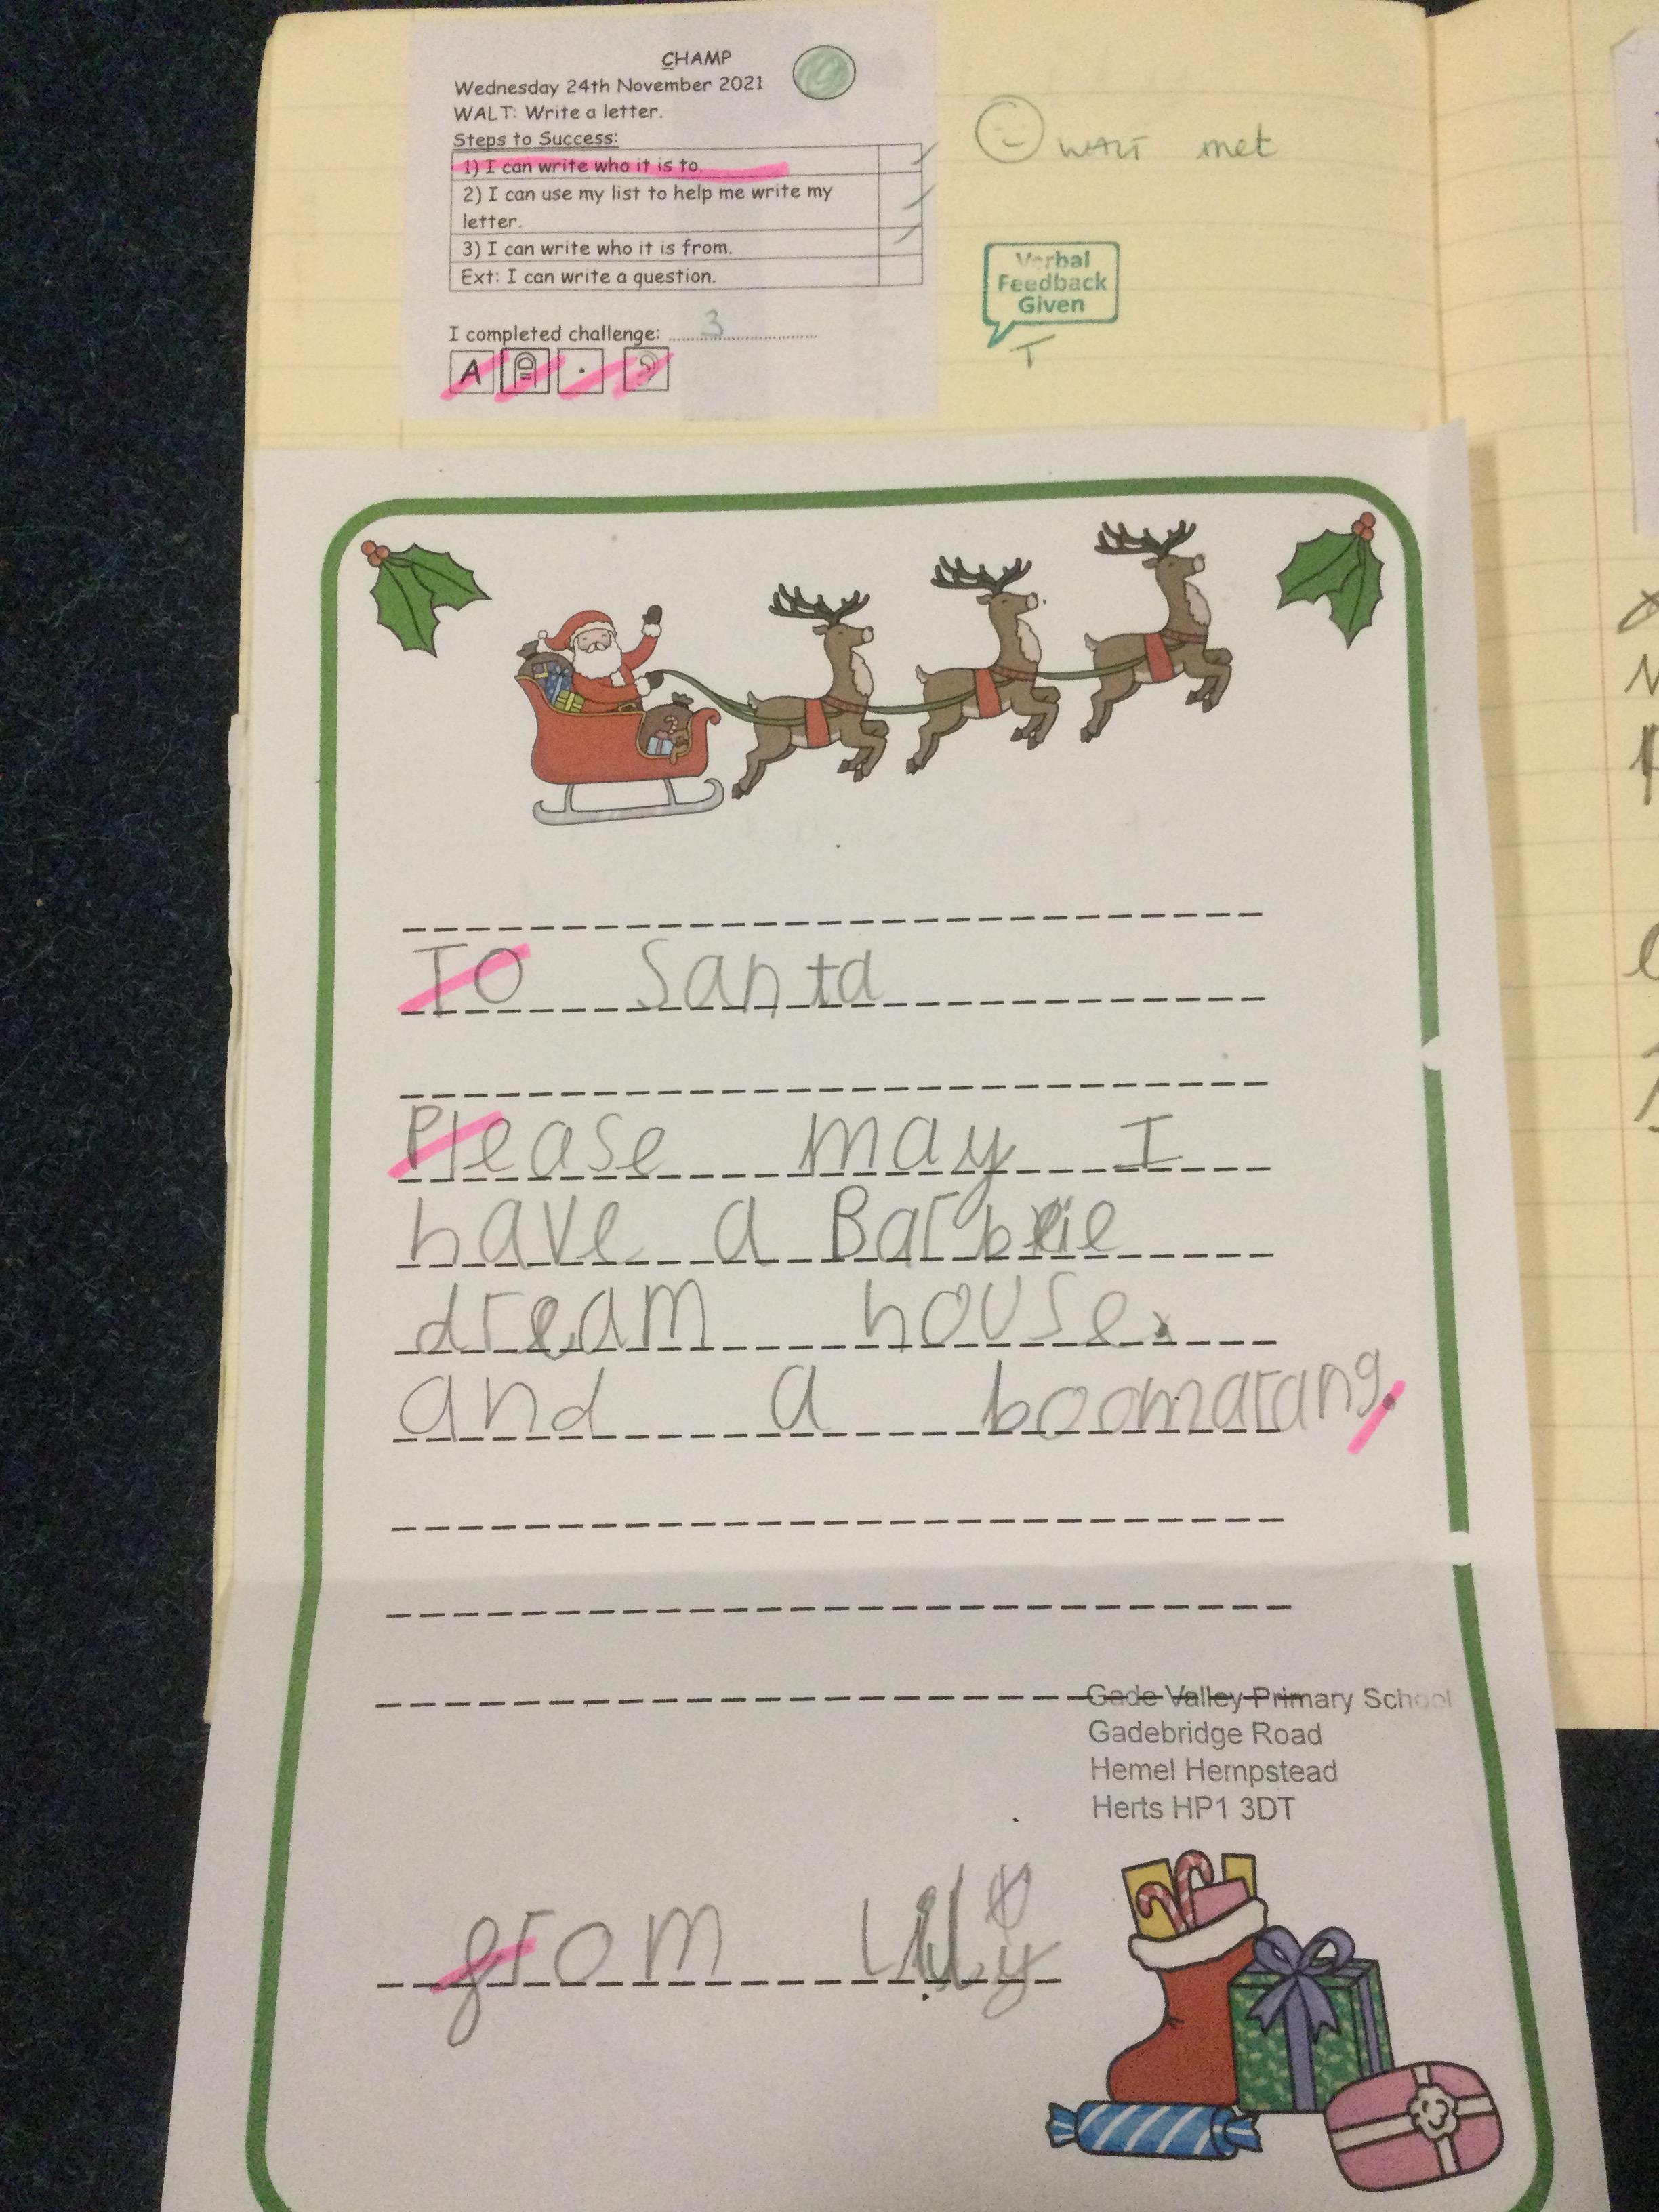 CHAMP
Wednesday 24th November 2021
WALT: Write a letter.
Steps to Success:
1) I can write who it is to.
2) I can use my list to help me write my
letter.
3) I can write who it is from.
Ext: I can write a question.
I completed challenge: 3
A
WALT met
Verbal
Feedback
Given
T
To Santa
Please may I
have a Barbie
dream house.
and a boomarang.
Gade Valley Primary School
Gadebridge Road
Hemel Hempstead
Herts HP1 3DT
from Lily